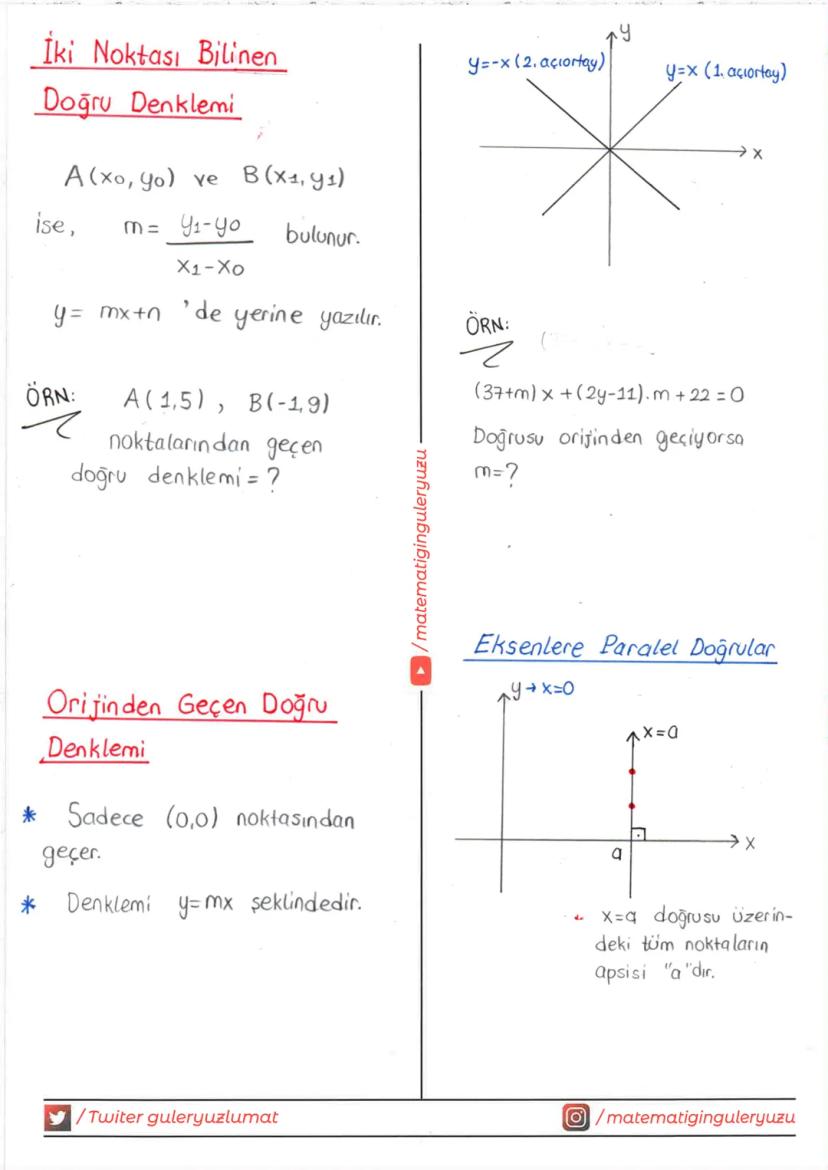 İki Noktası Bilinen
Doğru Denklemi
A(x₀, y₀) ve B(x₁, y₁)
ise, m = y₁-y₀ bulunur.
x₁-x₀
y= mx+n 'de yerine yazılır.
ÖRN: A(1,5) , B(-1,9)
noktalarından geçen
doğru denklemi = ?
Orijinden Geçen Doğru
Denklemi
* Sadece (0,0) noktasından
geçer.
* Denklemi y=mx şeklindedir.
/matematiginguleryuzu
y
y=-x (2. açıortay)
y=x (1. açıortay)
x
ÖRN:
(37+m)x + (2y-11).m + 22 = 0
Doğrusu orijinden geçiyorsa
m=?
Eksenlere Paralel Doğrular
y → x=0
x=a
x
a
x=a doğrusu üzerin-
deki tüm noktaların
apsisi "a"dır.
/Twiter guleryuzlumat
/matematiginguleryuzu